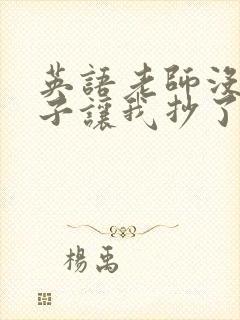 英語老師沒
子讓我抄了
楊禹